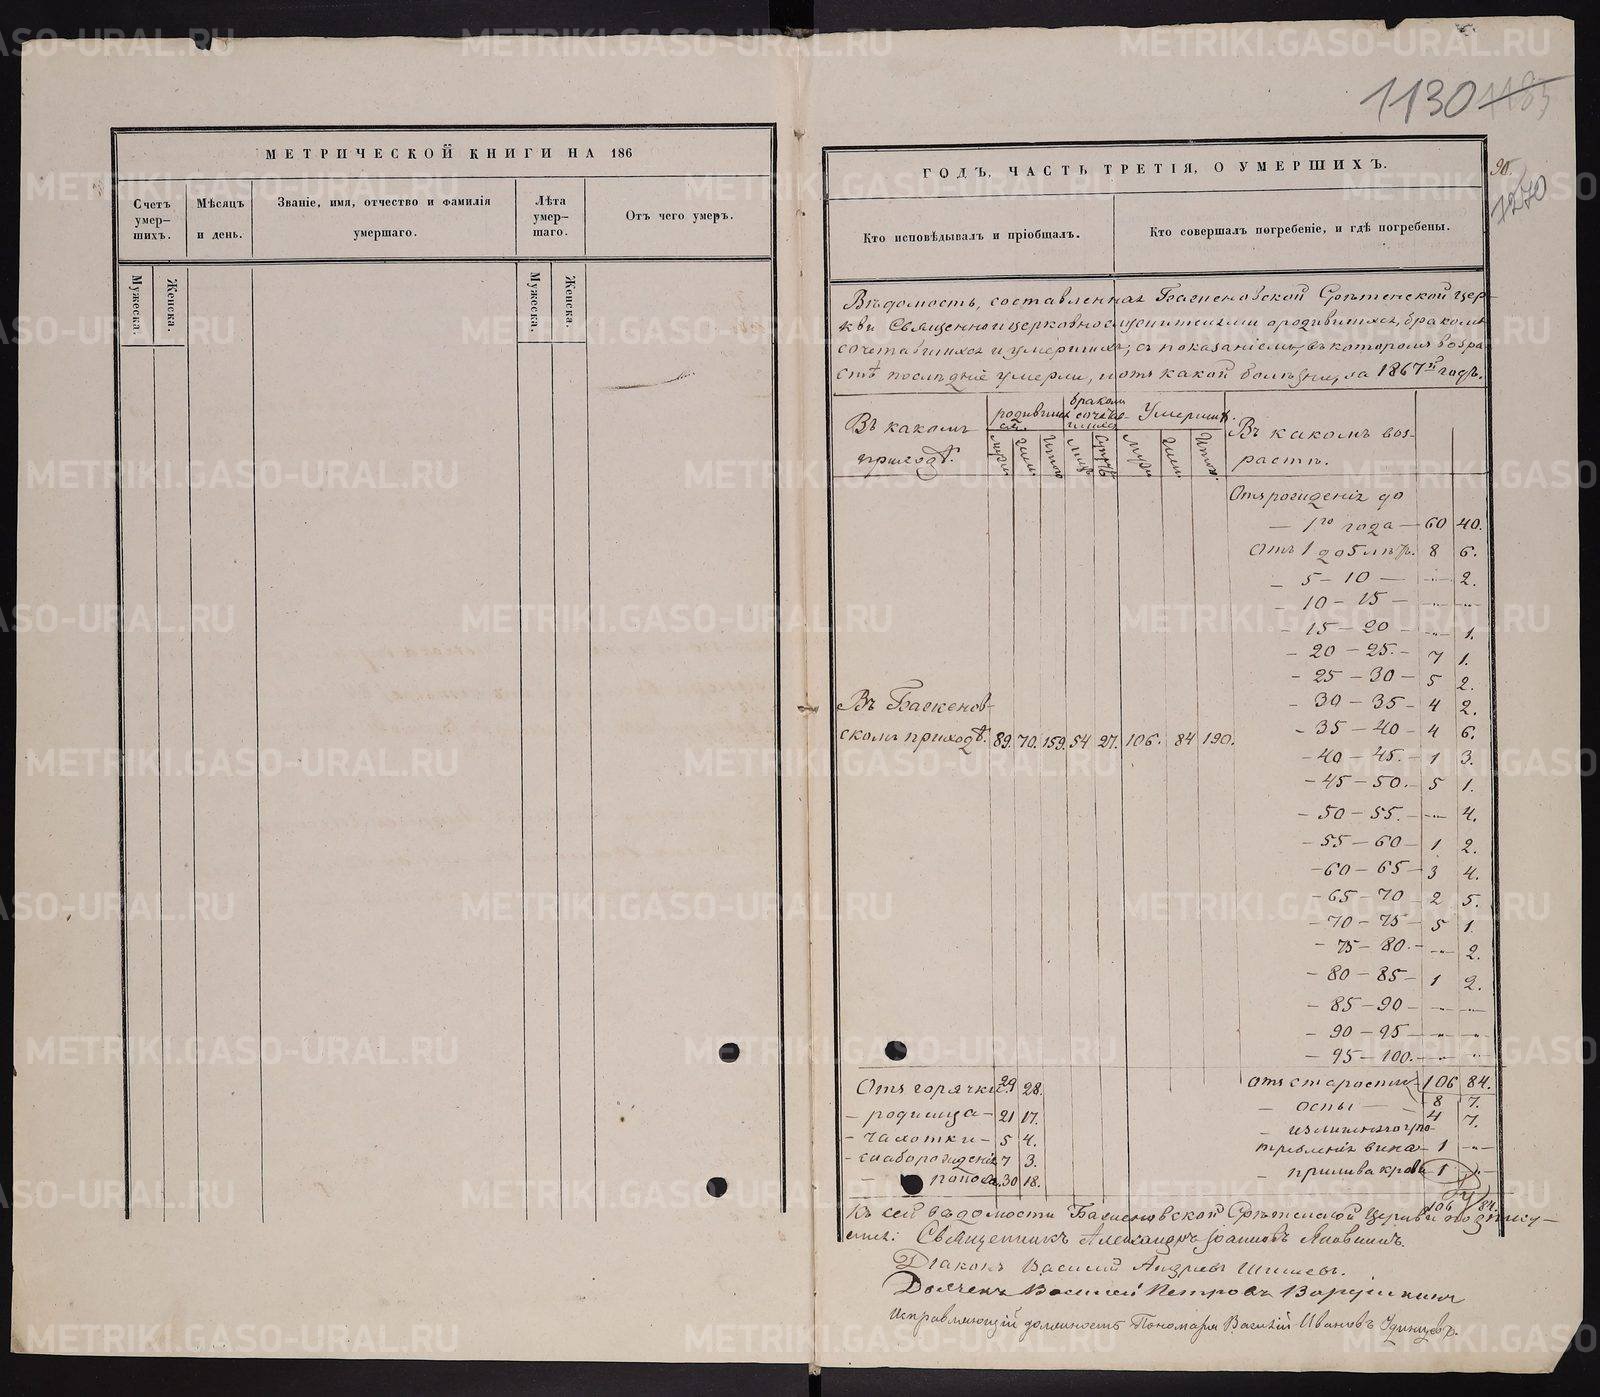 1130 1185
МЕТРИЧЕСКОЙ КНИГИ НА 186
Счетъ умер-шихъ.
Мужеска.
Женска.
Мѣсяцъ и день.
Званіе, имя, отчество и фамилія умершаго.
Лѣта умер-шаго.
Мужеска.
Женска.
Отъ чего умеръ.
ГОДЪ, ЧАСТЬ ТРЕТІЯ, О УМЕРШИХЪ.
90.
1270
Кто исповѣдывалъ и пріобщалъ.
Кто совершалъ погребеніе, и гдѣ погребены.
Вѣдомость, составленная Баженовской Срѣтенской цер-
кви Священноицерковнослужителями ородившихся, бракомъ
сочетавшихся и умершихъ, съ показаніемъ, въ которомъ возра-
стѣ послѣдніе умерли, и отъ какой болѣзни, за 1867й годъ.
Въ какомъ приходѣ.
родивших-ся.
бракомъ сочета-
Умершихъ.
Въ какомъ воз-
растѣ.
Отъ рожденія до
— 1го года — 60 40.
Отъ 1 до 5 лѣтъ. 8 6.
— 5 — 10 — „ 2.
— 10 — 15 — „ „
— 15 — 20 — „ 1.
— 20 — 25. — 7 1.
— 25 — 30 — 5 2.
— 30 — 35 — 4 2.
Въ Баженов-
— 35 — 40 — 4 6.
скомъ приходѣ. 89. 70. 159. 54 27. 106. 84 190.
— 40 — 45. — 1 3.
— 45 — 50. — 5 1.
— 50 — 55. — „ 4.
— 55 — 60 — 1 2.
— 60 — 65 — 3 4.
— 65 — 70 — 2 5.
— 70 — 75 — 5 1.
— 75 — 80. — „ 2.
— 80 — 85 — 1 2.
— 85 — 90 — „ „
— 90 — 95 — „ „
— 95 — 100. — „ „
106 84.
Отъ горячки 29 28.
отъ старости 8 7.
— родимца — 21 17.
— оспы — 4 7.
— чахотки — 5 4.
— излишняго упо-
требленія вина — 1 „
— слаборожденія 7 3.
— прилива крови 1 „
— поноса. 30 18.
106 84.
Къ сей вѣдомости Баженовской Срѣтенской Церкви подпису-
емся: Священникъ Александръ Іоанновъ
Діаконъ Василій Андреевъ
Дьячекъ Василій Петровъ
Исправляющій должность Пономаря Василій Ивановъ Удинцевъ.
METRIKI.GASO-URAL.RU